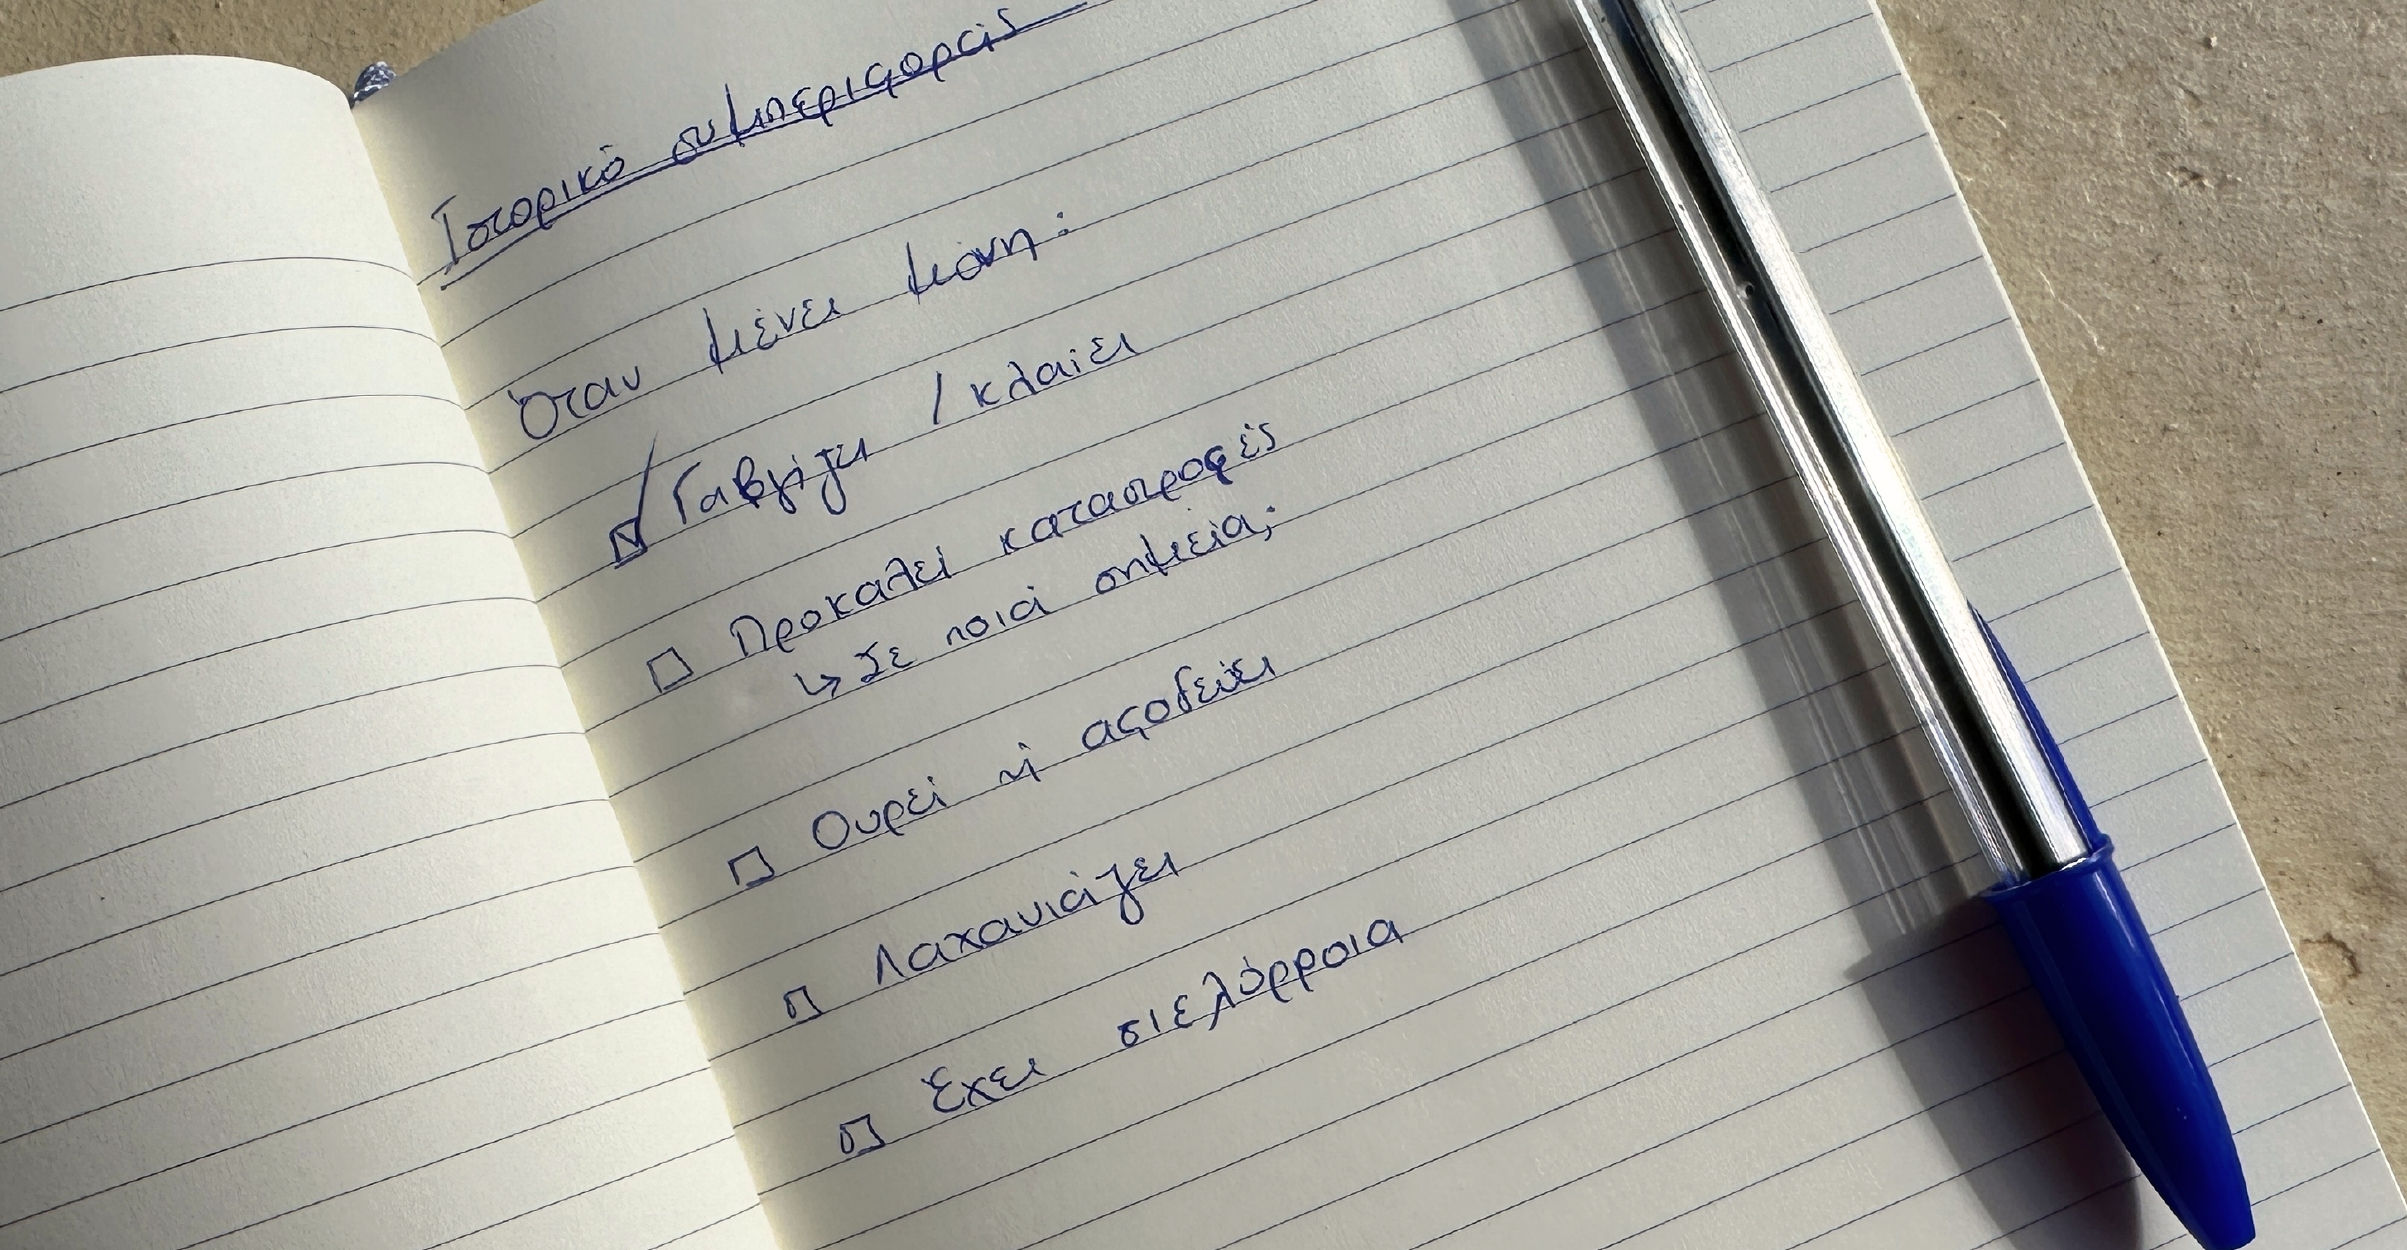 Ιστορικό συμπεριφοράς
Όταν μένει μόνη:
☑ Γαβγίζει / κλαίει
☐ Προκαλεί καταστροφές
↳ Σε ποιά σημεία;
☐ Ουρεί ή αφοδεύει
☐ Λαχανιάζει
☐ Έχει σιελόρροια